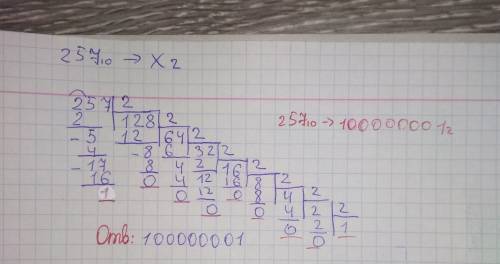 257₁₀ → X₂
257 2
2 128 2
- 5 12 64 2
4 - 8 6 32 2
- 17 8 4 2 16 2
16 0 4 12 16 8 2
1 0 12 0 8 4 2
0 0 4 2 2
0 2 1
0
257₁₀ → 100000001₂
Отв: 100000001